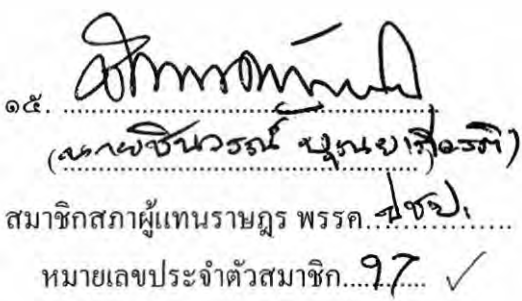 ๑๕. ........................................
(นายชินวรณ์ บุณยเกียรติ)
สมาชิกสภาผู้แทนราษฎร พรรค ปชป.
หมายเลขประจำตัวสมาชิก....97.... ✓